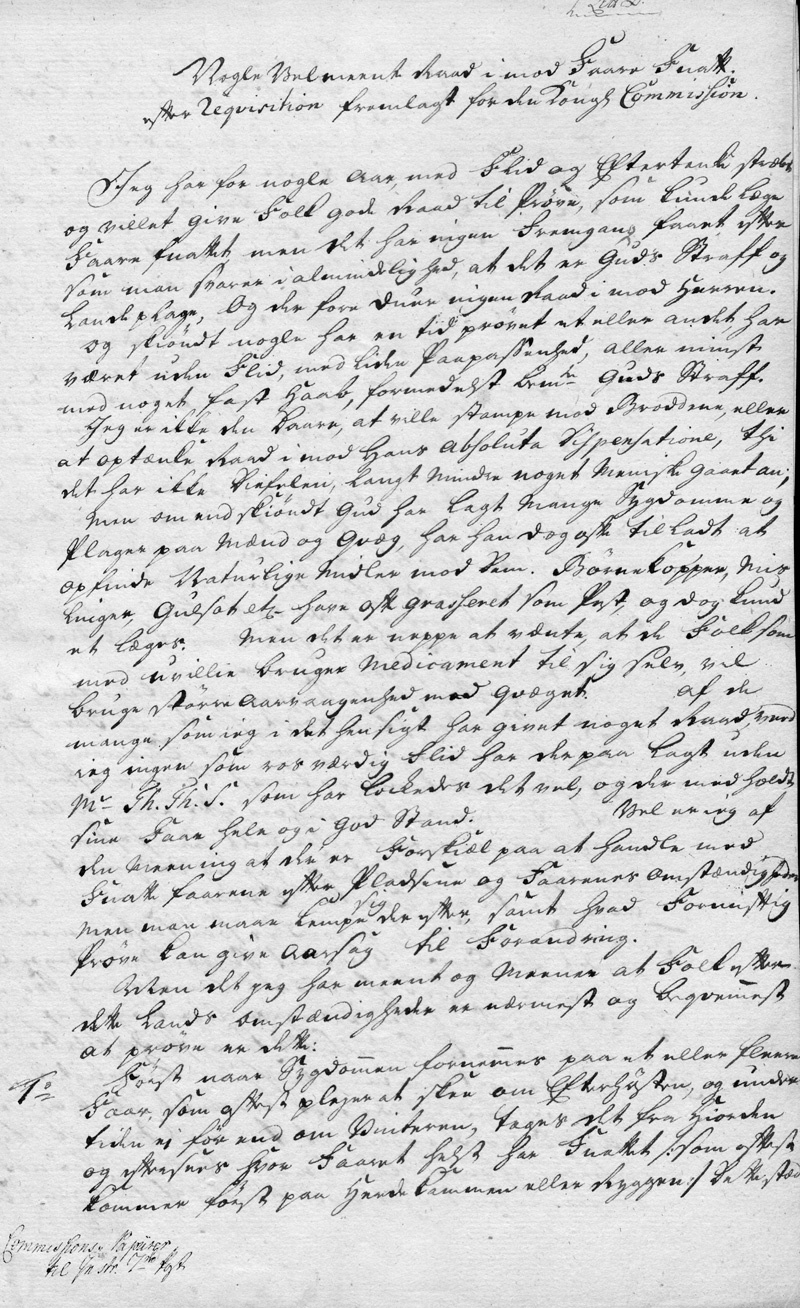 Lit. L.
Nogle Velmeent Raad i mod Faare Fnatt.
efter Requisition fremlagt for den Kongl Commission.
Jeg har for nogle Aar, med Flid og Eftertenke stræbt
og villet give Folk gode Raad til Prøve, som kunde læge
Faare fnattet, men det har ingen Fremgang faaet efter
som man svarer i almindelighed, at det er Guds Straff og
Landeplage, Og der fore duer ingen Raad i mod Herren.
og skiöndt nogle har en tid prövet et eller andet har
været uden Flid, med liden Paapassenhed, aller minst
med noget fast Haab, formedelst Guds Straff.
Jeg er ikke den Kaare, at ville stampe mod Brodden, eller
at optænke Raad i mod Hans Absoluta Dispensatione, thi
det har ikke Diefelen, langt mindre noget Meniske gaaet an;
Men om end skiöndt Gud har lagt mange Sygdomme og
Plager paa Mænd og Qvæg, har han dog ofte tilladt at
opfinde Naturlige Midler mod dem. Börnekopper, Mis
linger, Gulsot etc have ofte grasseret som Pest, og dog kund
et læges. Men det er neppe at vænte, at de Folk som
med uvillie bruger Medicament til sig selv, vil
bruge större Aarvaagenhed med Qvæget. af de
mange som ieg i det hensigt har givet noget Raad, veed
ieg ingen som rosværdig Flid har der paa lagt uden
Mr Th. Th. S. som har lockedes det vel, og der med holdt
sine Faar hele og i god Stand. Vel er ieg af
den Meening at der er Forskiæl paa at handle med
Fnatt faarene efter Pladserne og Faarenes omstændigheder
men man maae lempe sig der efter, samt hvad Fornuftig
Pröve kan give Aarsag til Forandring.
Men det jeg har meent og Meener at Folk efter
dette Lands omstændigheder er nærmest og beqvemmest
at pröve er dette:
1o Först naar Sygdommen fornemmes paa et eller fleere
Faar, som oftest pleger at skee om Efterhösten, og under
tiden ei för end om Vinteren, tages det fra Hiorden
og eftersees hvor Faaret helst har Fnattet /: som oftest
kommer först paa Herdekammen eller Ryggen :/ Dette stæd
Commissions Papiirer
til Instr. 7de Post